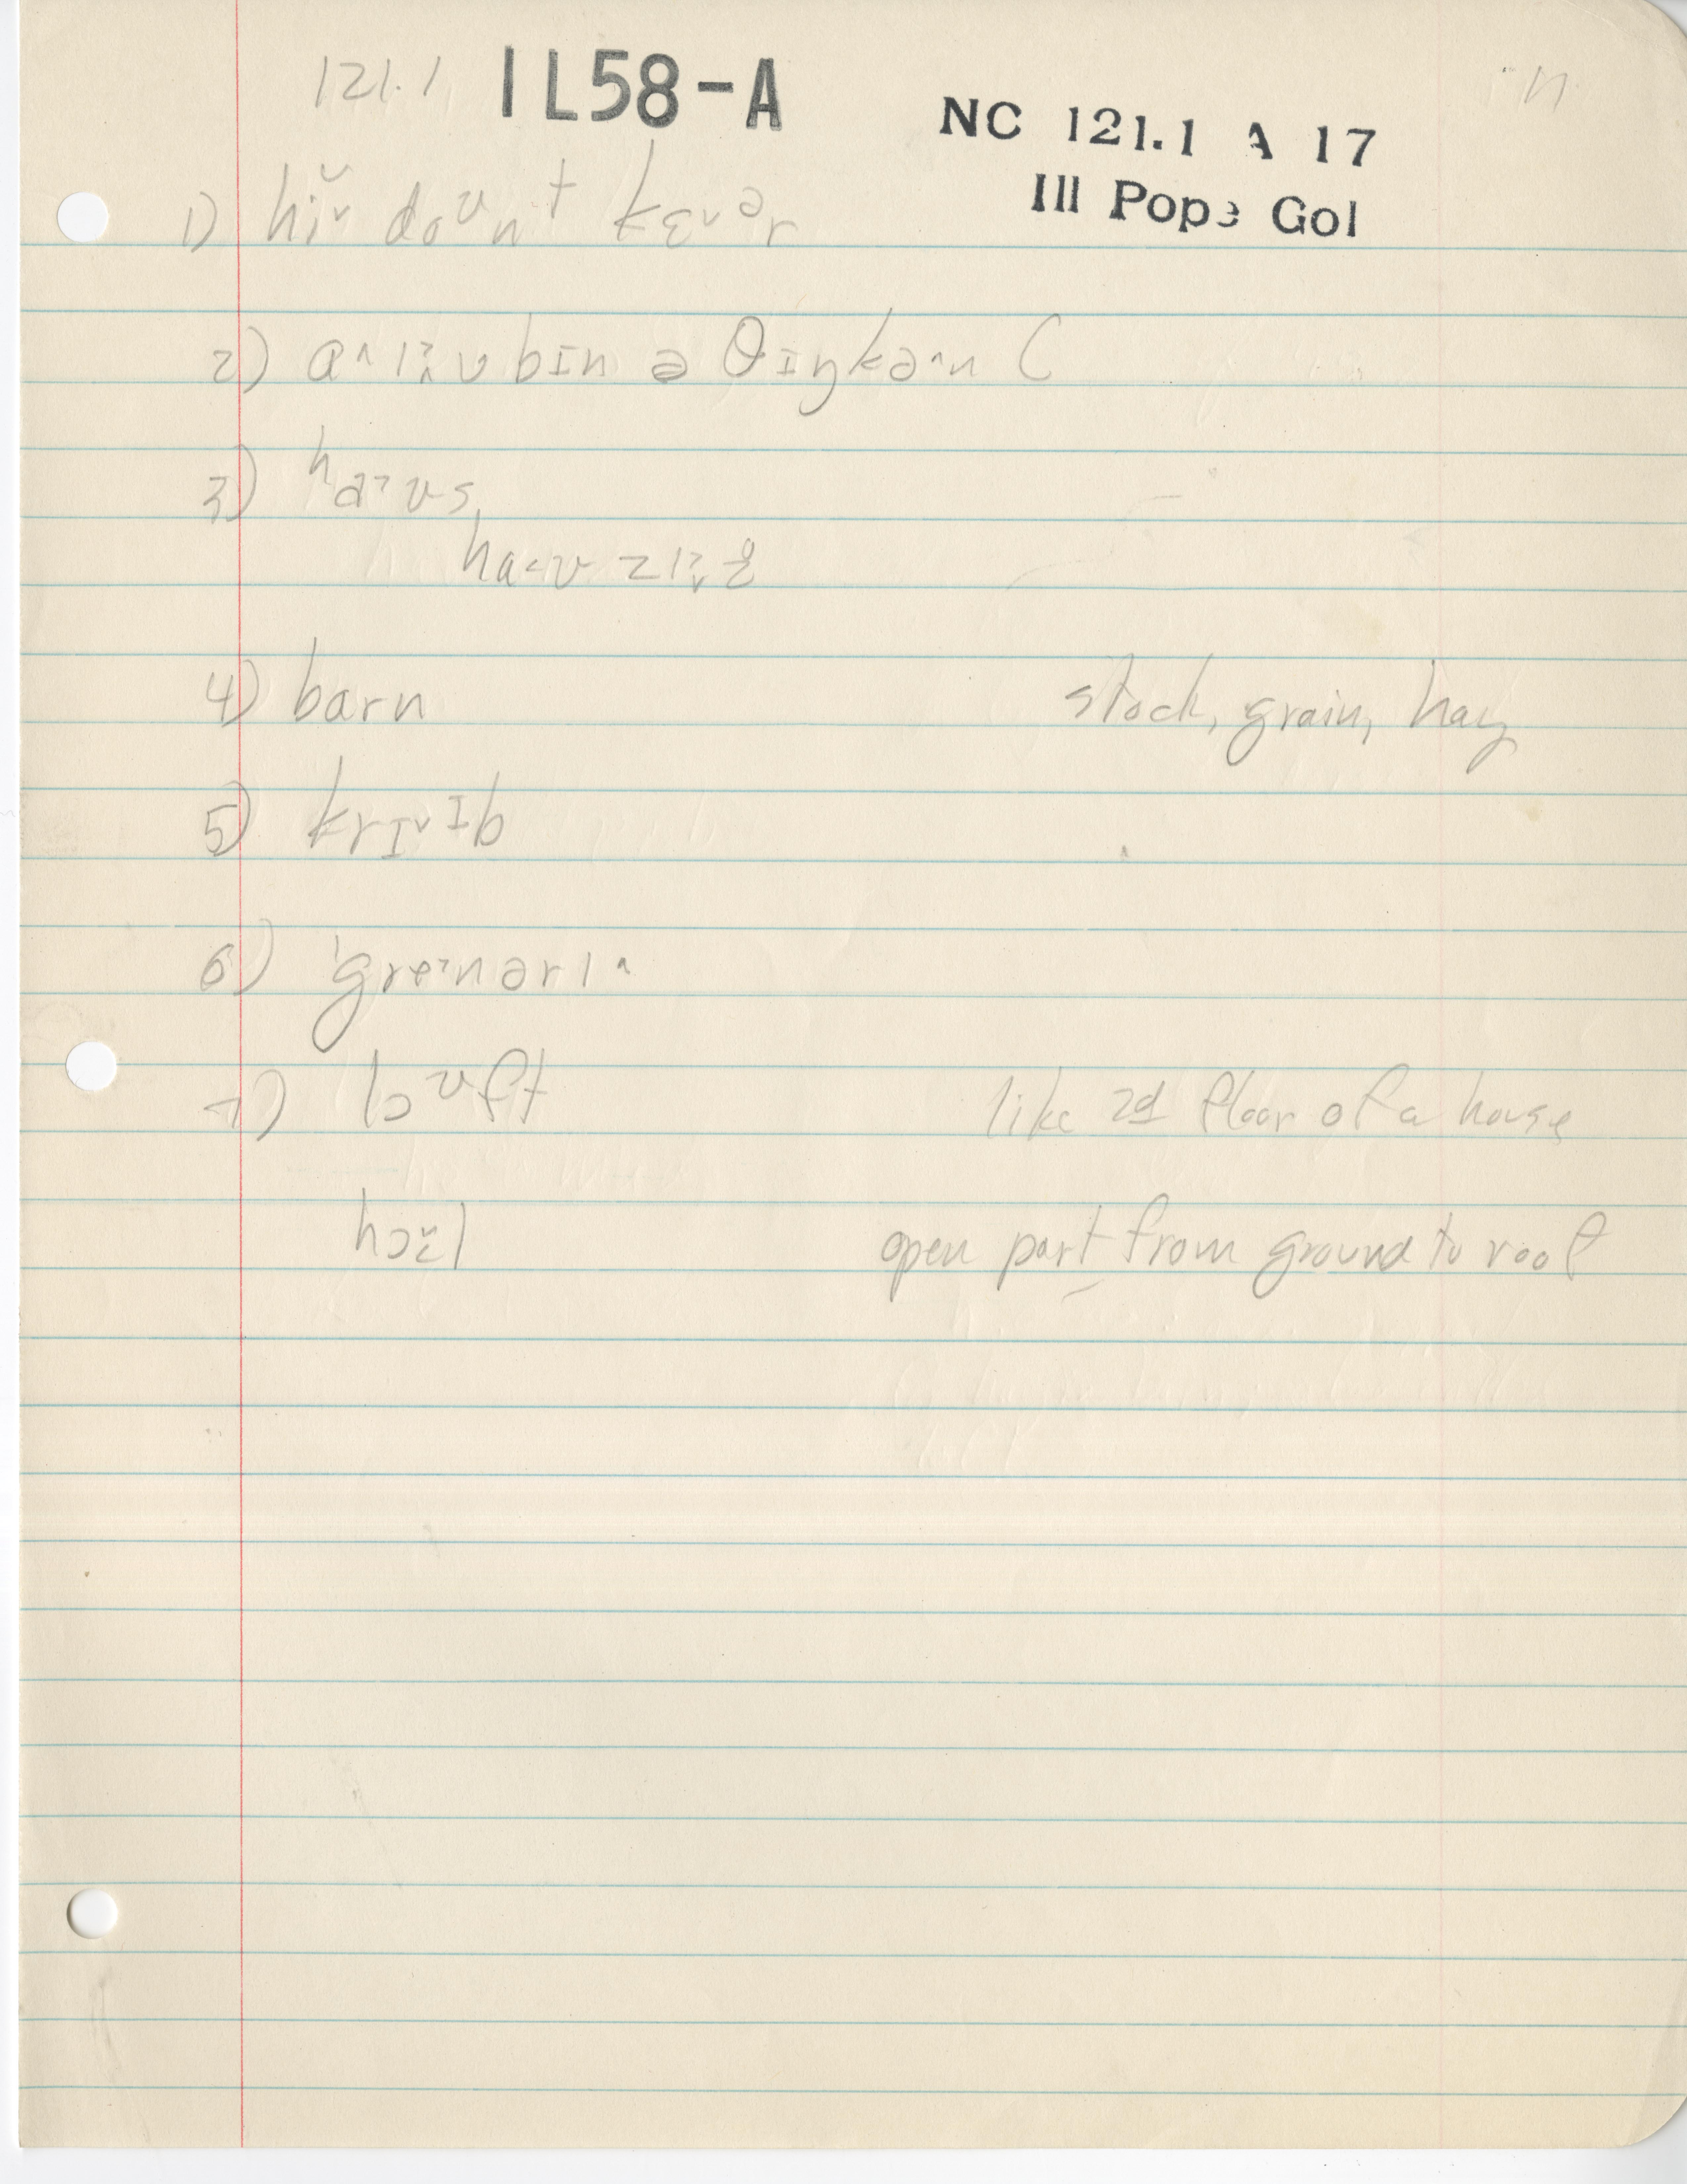 121.1 IL58-A
NC 121.1 A 17
Ill Pope Gol
1) hi˅ doʊnt kɛ˅ər
2) ɑ˄ i˃˄v bɪn ə θɪŋkə˄n C
3) hɑ˃ʊs,
hɑ˂ʊ zi˃˅z̥
4) barn stock, grain, hay
5) krɪ˅ɪb
6) ˈgre˃nəri˄
7) lɔʊft like 2d floor of a house
hɔɪ˅l open part from ground to roof